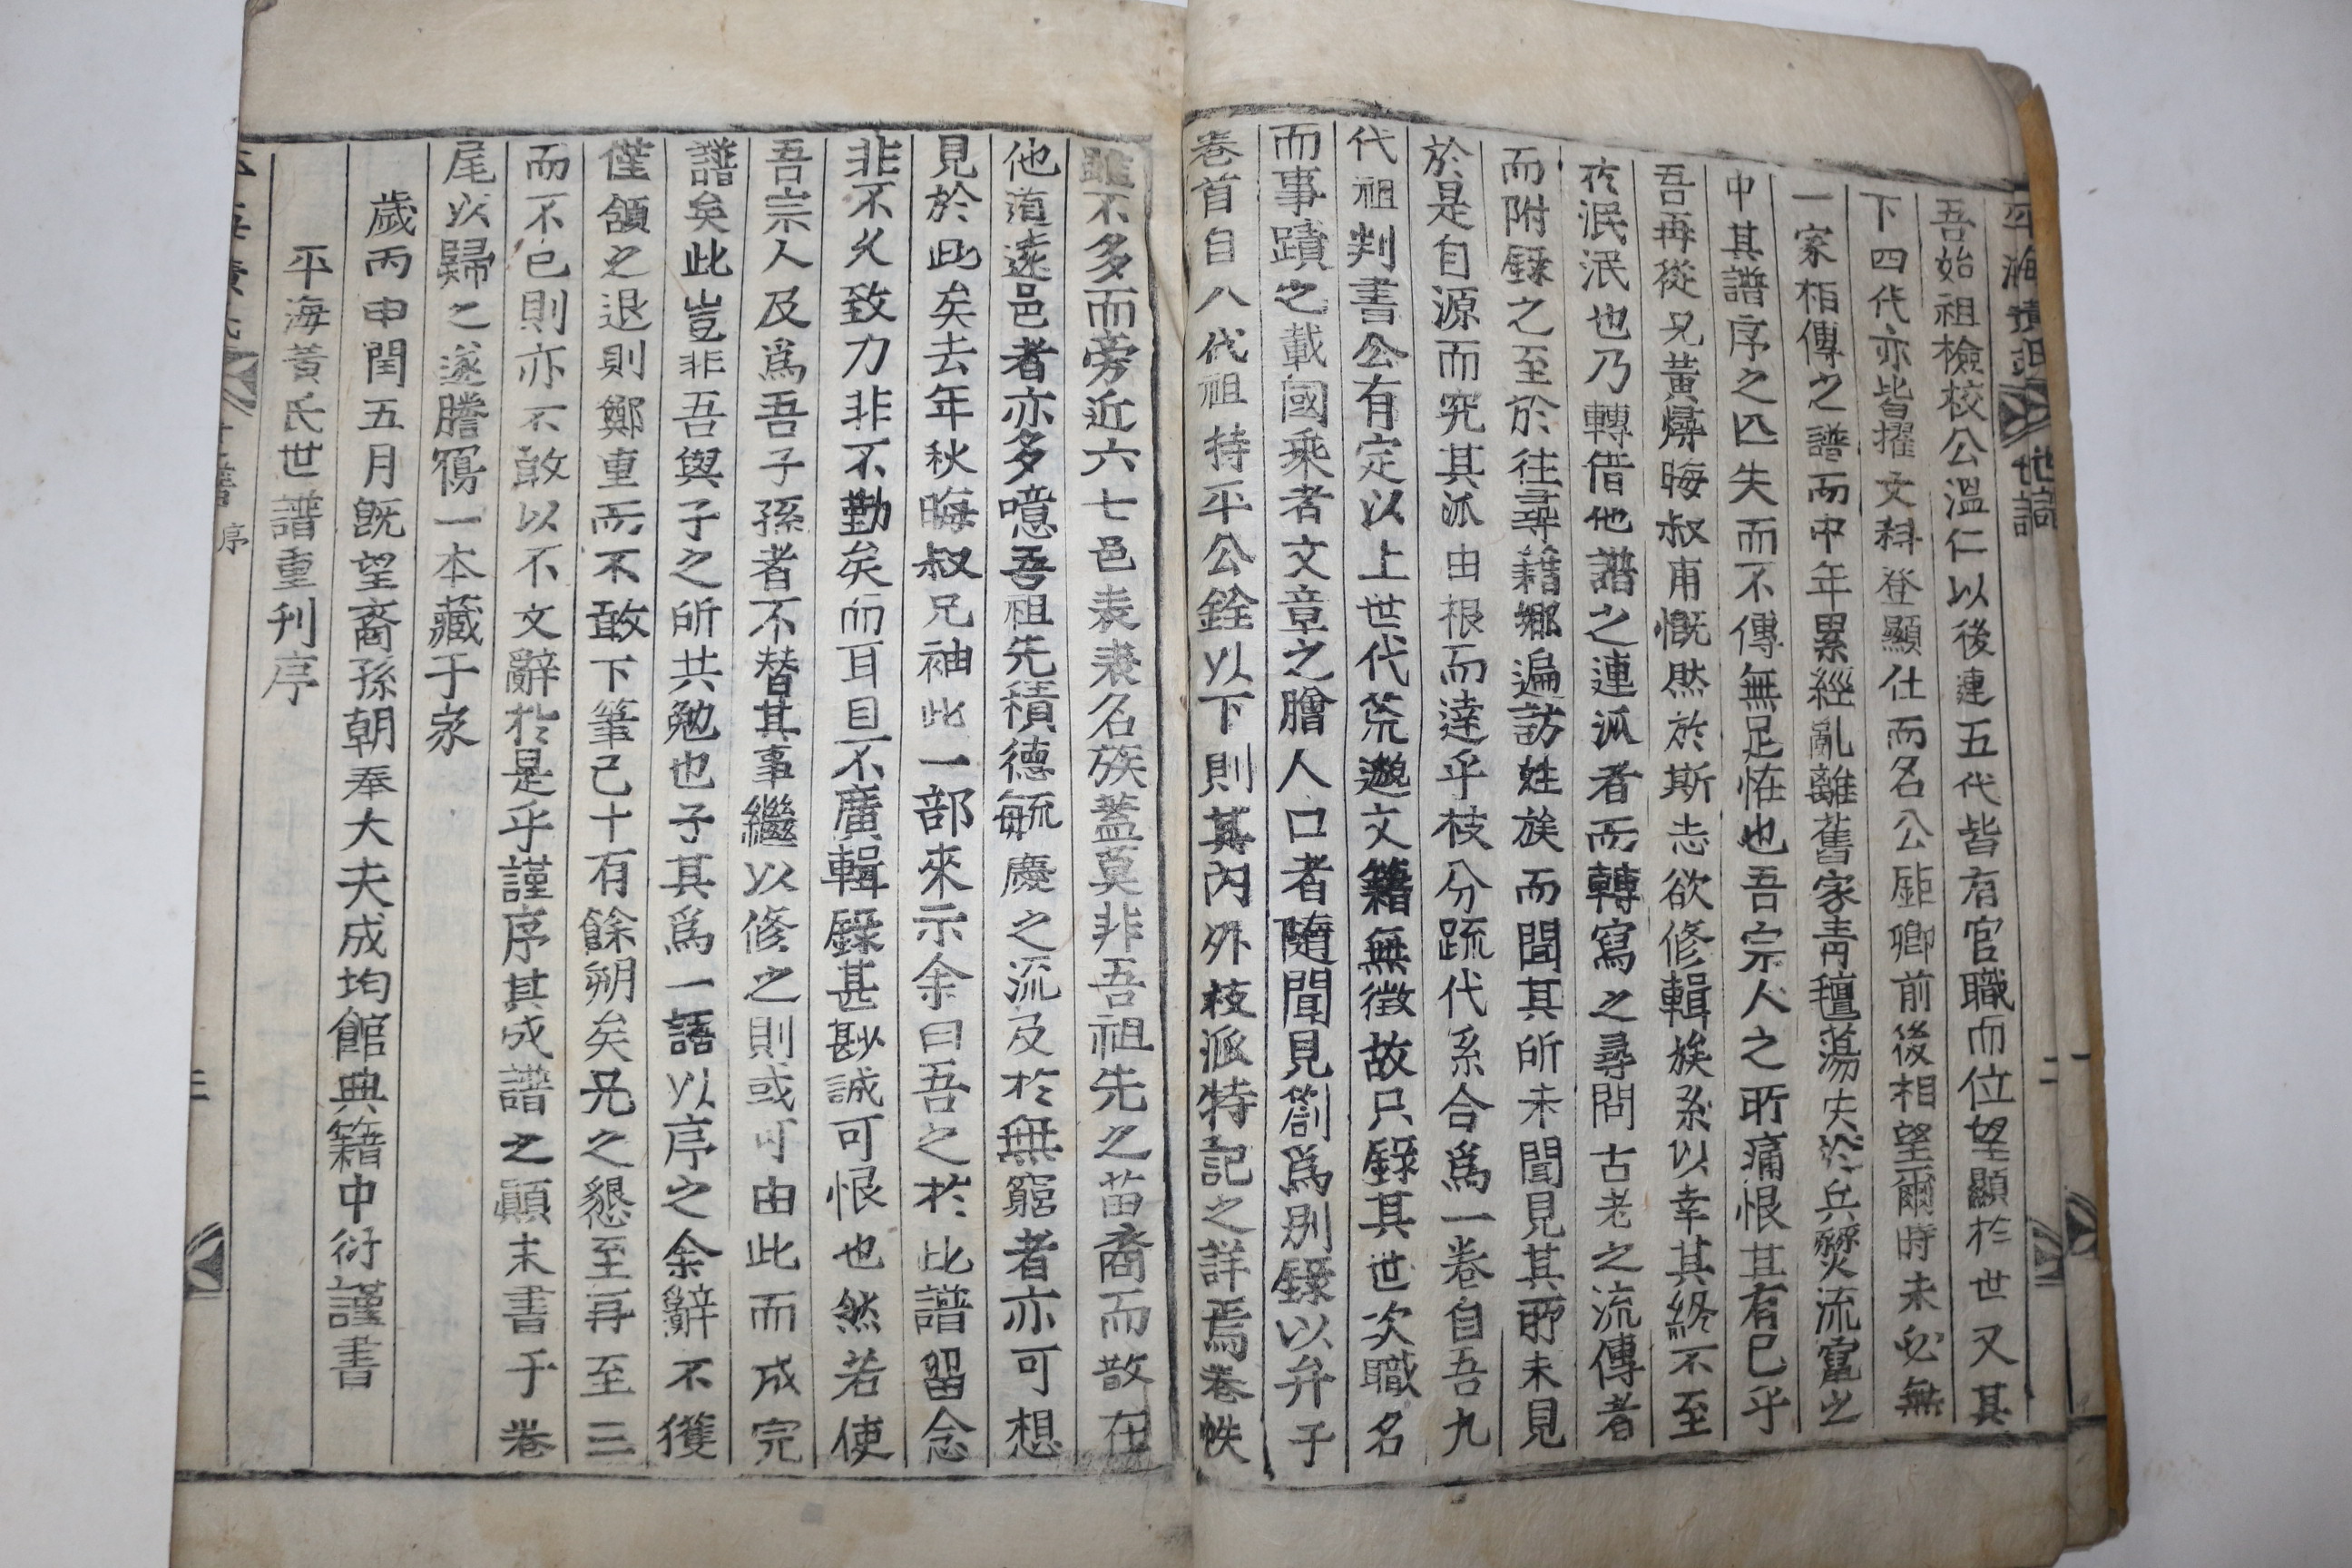 平海黃氏世譜
吾始祖檢校公溫仁以後連五代皆有官職而位望顯於世又其
下四代亦皆擢文科登顯仕而名公鉅卿前後相望爾時未必無
一家相傳之譜而中年累經亂離舊家靑氊蕩失於兵燹流竄之
中其譜序之匹失而不傳無足恠也吾宗人之所痛恨其有已乎
吾再從兄黃㷜晦叔甫慨然於斯志欲修輯族系以幸其終不至
於泯泯也乃轉借他譜之連派者而轉寫之尋問古老之流傳者
而附錄之至於往尋籍鄕遍訪姓族而聞其所未聞見其所未見
於是自源而究其派由根而達乎枝分疏代系合爲一卷自吾九
代祖判書公有定以上世代荒邈文籍無徵故只錄其世次職名
而事蹟之載國乘者文章之膾人口者隨聞見箚爲別錄以弁予
卷首自八代祖持平公銓以下則其內外枝派特記之詳焉卷帙
雖不多而旁近六七邑表表名族蓋莫非吾祖先之苗裔而散在
他道遠邑者亦多噫吾祖先積德毓慶之流及於無窮者亦可想
見於此矣去年秋晦叔兄袖此一部來示余曰吾之於此譜留念
非不久致力非不勤矣而耳目不廣輯錄甚尠誠可恨也然若使
吾宗人及爲吾子孫者不替其事繼以修之則或可由此而成完
譜矣此豈非吾與子之所共勉也子其爲一語以序之余辭不獲
僅頷之退則鄭重而不敢下筆已十有餘朔矣兄之懇至再至三
而不已則亦不敢以不文辭於是乎謹序其成譜之顚末書于卷
尾以歸之遂謄寫一本藏于家
歲丙申閏五月旣望裔孫朝奉大夫成均館典籍中衍謹書
平海黃氏世譜重刊序
序
三